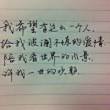 我希望有这么一个人，
给我波澜不惊的爱情
陪我看世界的风景
许我一世的欢颜